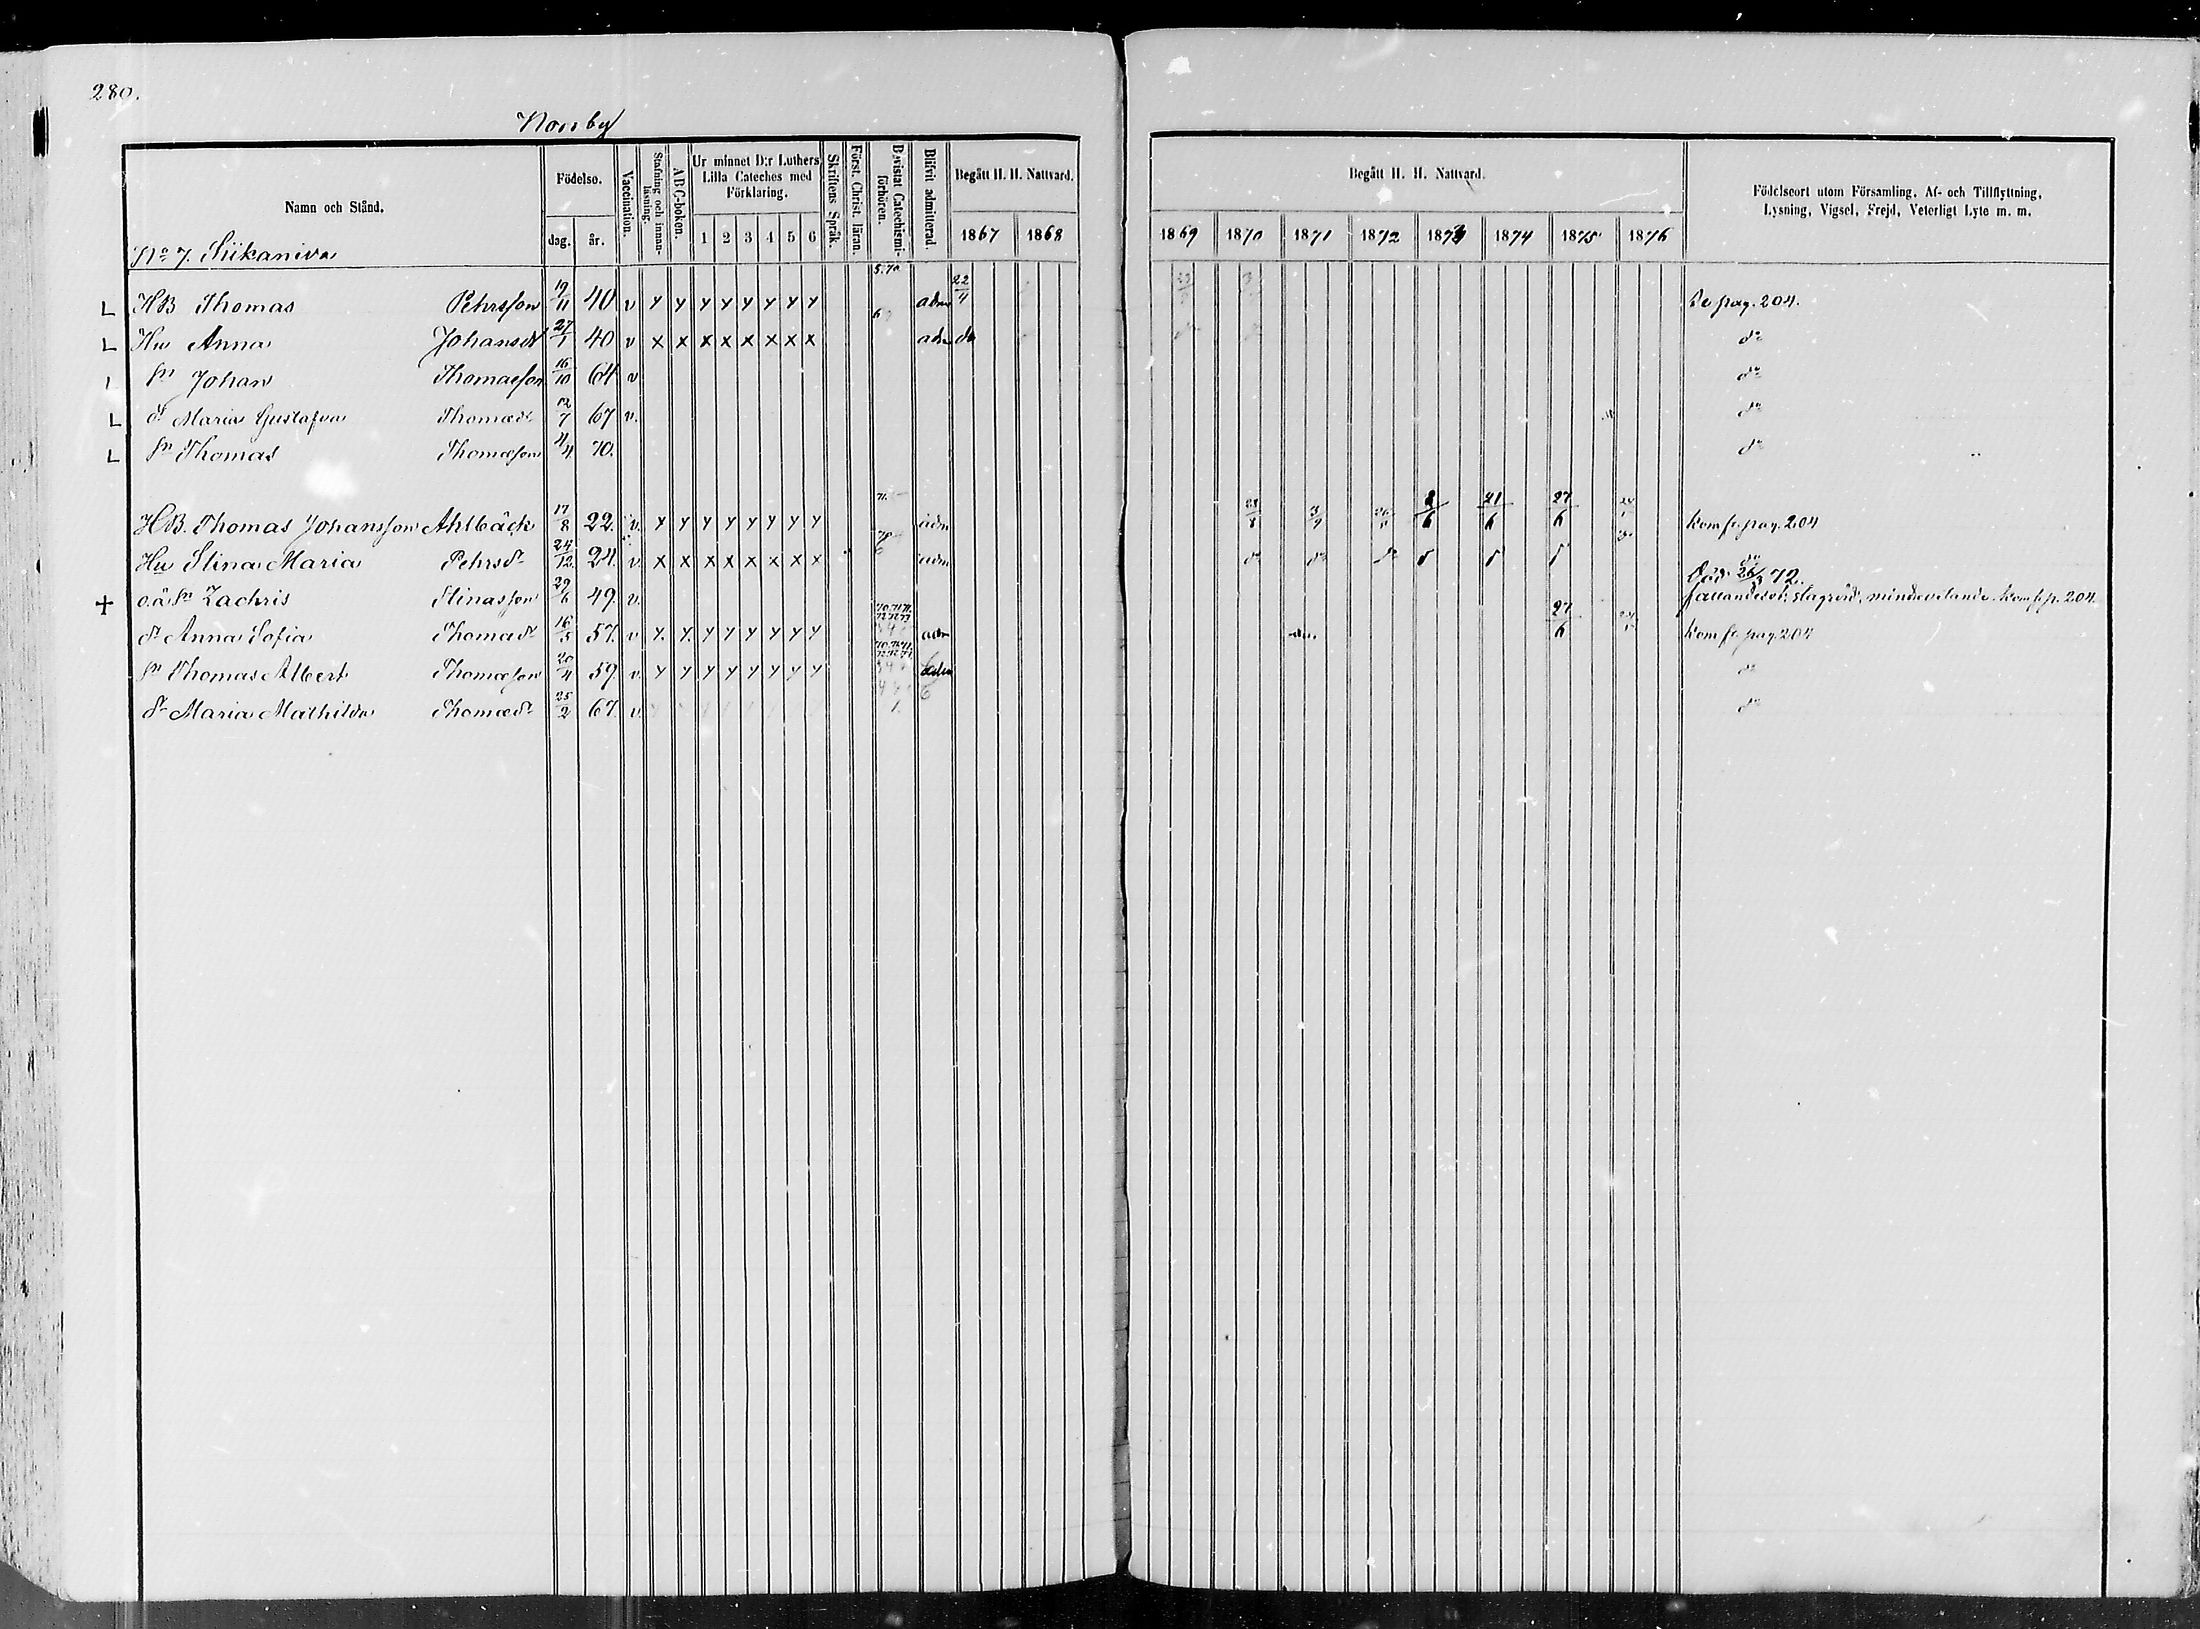 280.
Norrby
Namn och Stånd.
Födelse.
dag. år.
Vaccination.
Stafning och innan-läsning.
AB C-boken.
Ur minnet D:r Luthers Lilla Cateches med Förklaring.
1 2 3 4 5 6
Skriftens Språk.
Först. Christ. läran.
Bevistat Catechismi-förhören.
Blifvit admitterad.
Begått H. H. Nattvard.
1867 1868
Begått H. H. Nattvard.
1869 1870 1871 1872 1873 1874 1875 1876
Födelseort utom Församling, Af- och Tillflyttning,
Lysning, Vigsel, Frejd, Veterligt Lyte m. m.
No 7. Siikaniva
L HB Thomas Pehrsson 19/11 40 v y y y y y y y y adm 22/4 Se pag. 204.
L Hu Anna Johansdr 27/1 40 v x x x x x x x x adm do do
L Sn Johan Thomasson 16/10 64 v do
L dr Maria Gustafva Thomædr 12/7 67 v. do
L Sn Thomas Thomæson 4/4 70. do
HB. Thomas Johansson Ahlbäck 17/8 22. v. y y y y y y y y adm 8/6 21/6 27/6 kom fr. pag. 204
Hu Stina Maria Pehrsdr 24/12 24. v. x x x x x x x x adm do do do do
Död 26/3 72.
+ o.ä. Sn Zachris Stinasson 29/6 49. v. fallandesot, slagrörd, mindrevetande. kom fr p. 204.
dr Anna Sofia Thomædr 16/5 57. v y. y. y y y y y y adm 27/6 kom fr. pag. 204
Sn Thomas Albert Thomæson 20/4 59. v. y y y y y y y y adm do
dr Maria Mathilda Thomædr 25/2 67. v. do